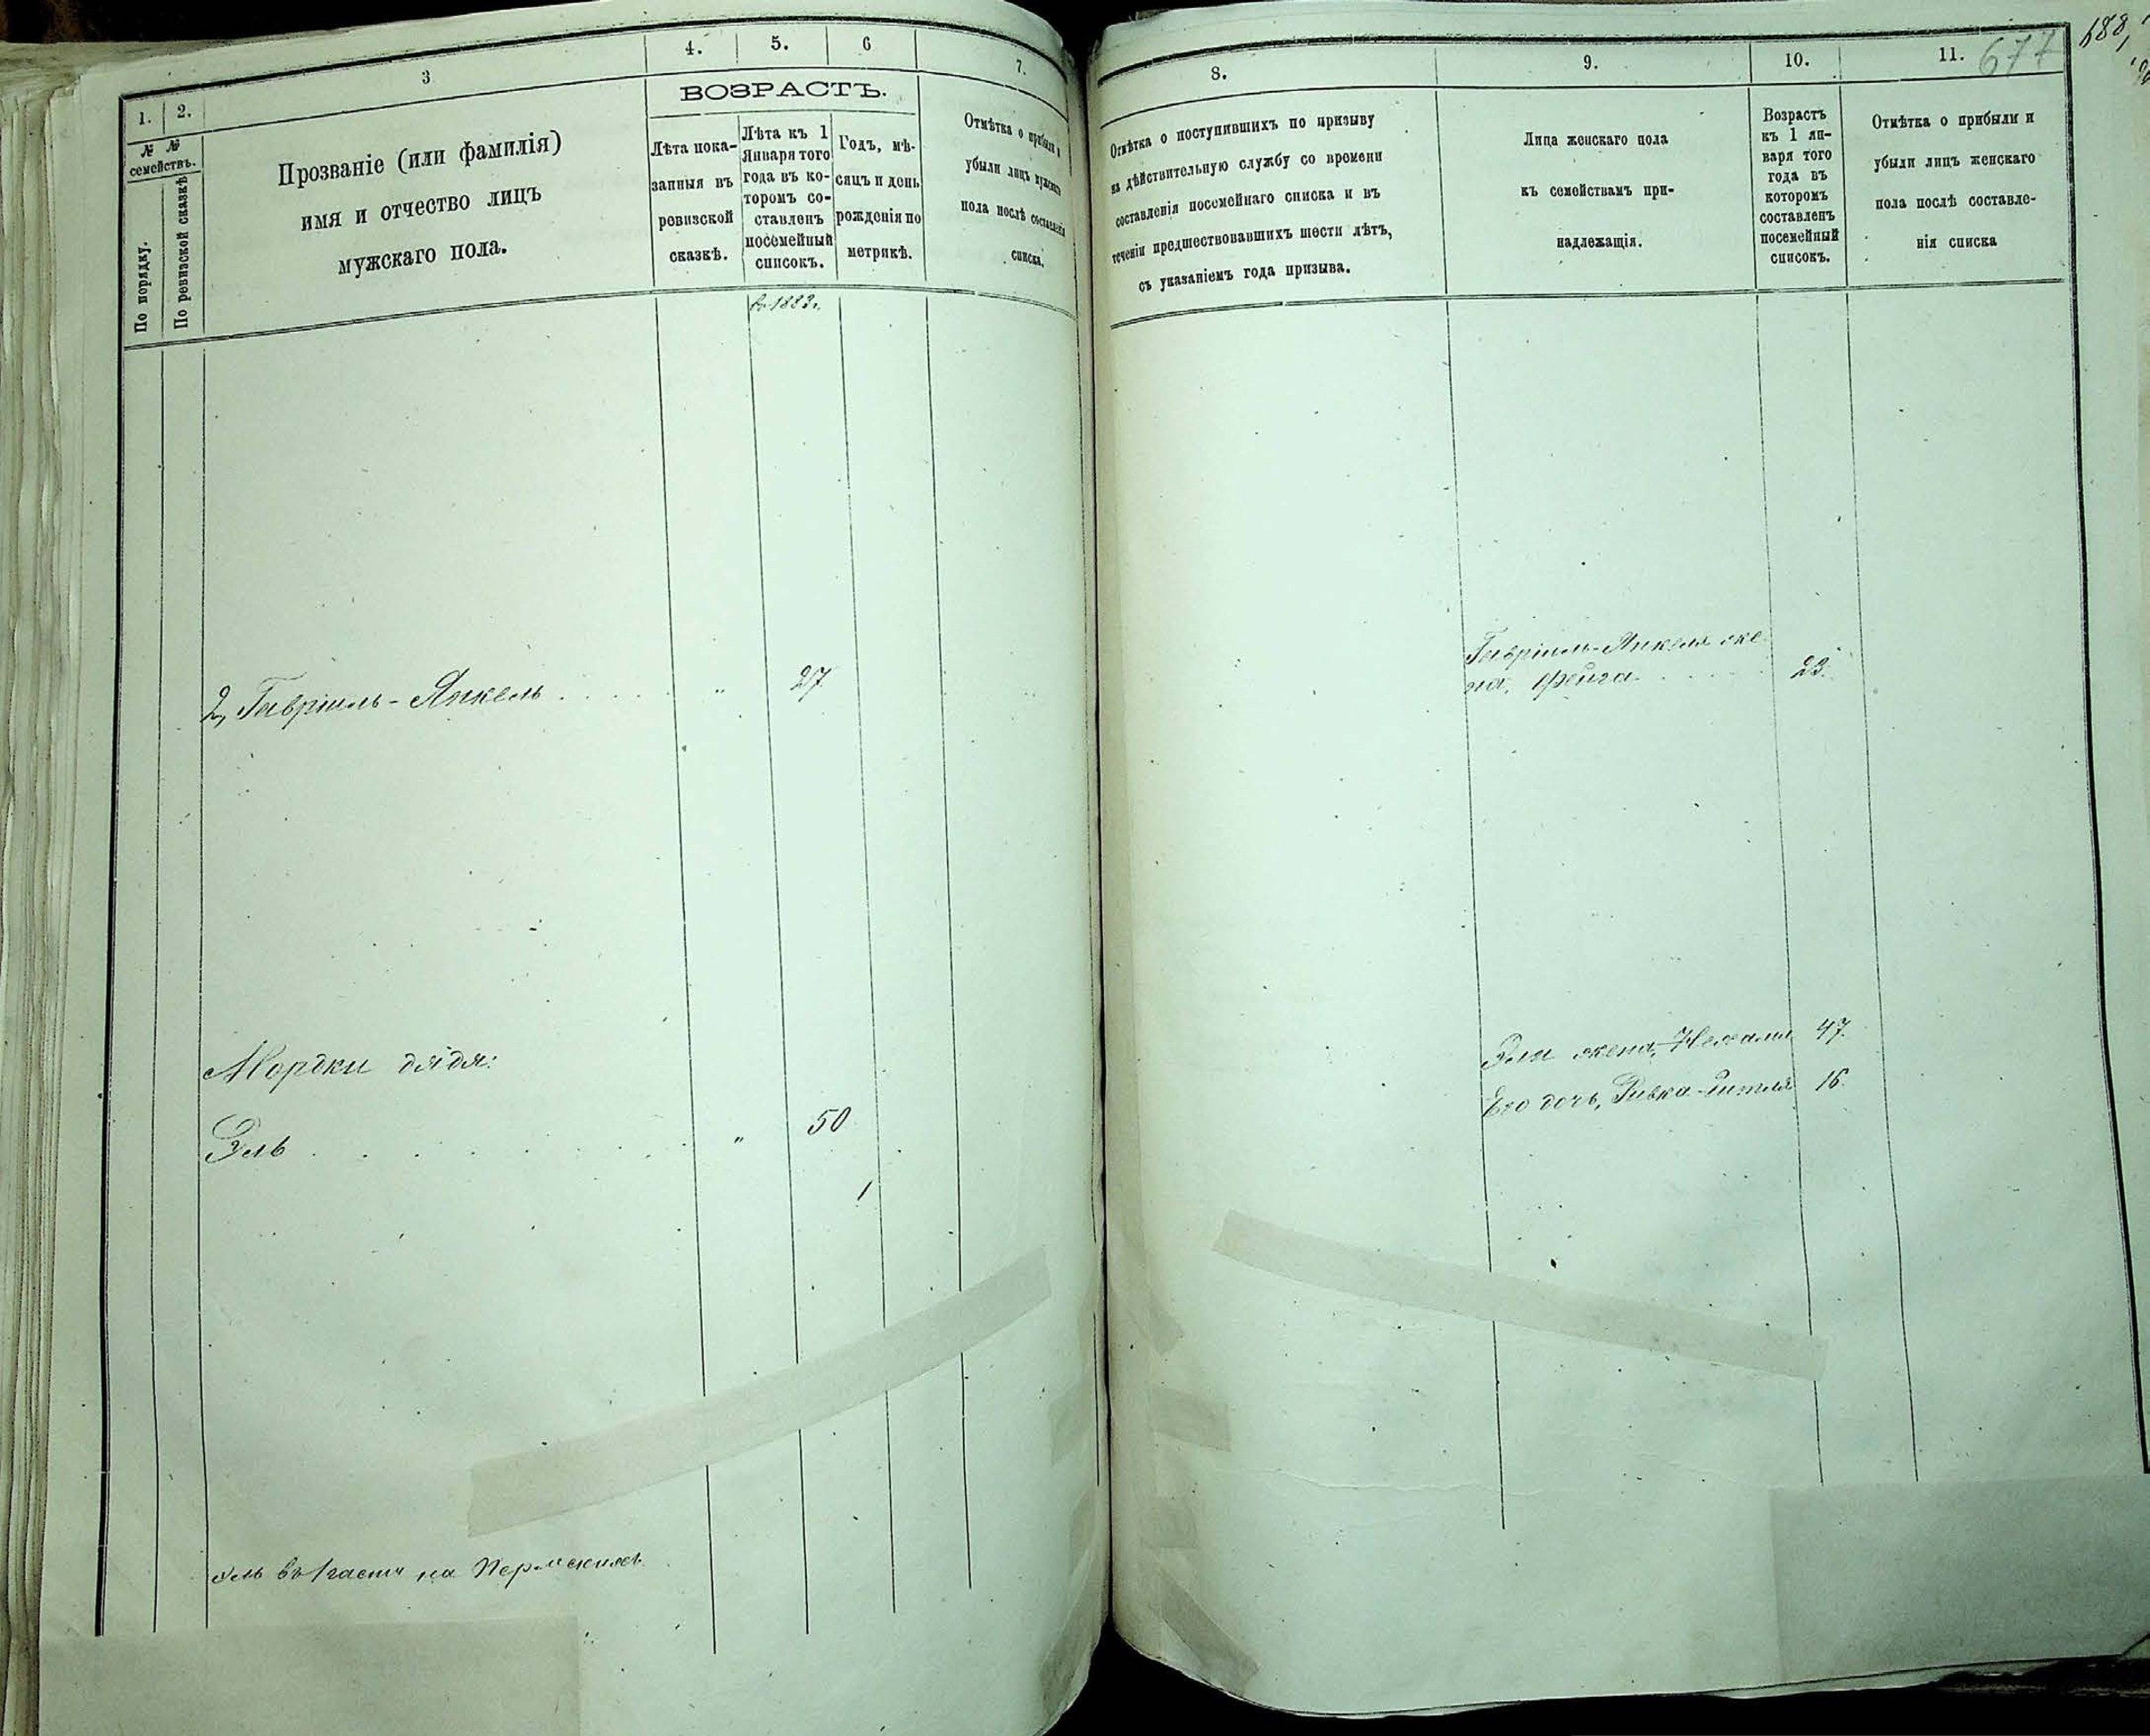 1.
2.
3
4.
5.
6
7.
№ №
семействъ.
По порядку.
По ревизской сказкѣ
Прозваніе (или фамилія)
имя и отчество лицъ
мужскаго пола.
ВОЗРАСТЪ.
Лѣта пока-
занныя въ
ревизской
сказкѣ.
Лѣта къ 1
Января того
года въ ко-
торомъ со-
ставленъ
посемейный
списокъ.
Годъ, мѣ-
сяцъ и день
рожденія по
метрикѣ.
Отмѣтка о прибыли и
убыли лицъ мужскаго
пола послѣ составленія
списка.
2, Гавріиль-Янкель . . . . . " 27
Мордки дядя:
Эль . . . . . . . . " 50
1
Эль въ 1 части на
8.
9.
10.
11.
677
688,
Отмѣтка о поступившихъ по призыву
на дѣйствительную службу со времени
составленія посемейнаго списка и въ
теченіи предшествовавшихъ шести лѣтъ,
съ указаніемъ года призыва.
Лица женскаго пола
къ семействамъ при-
надлежащія.
Возрастъ
къ 1 ян-
варя того
года въ
которомъ
составленъ
посемейный
списокъ.
Отмѣтка о прибыли и
убыли лицъ женскаго
пола послѣ составле-
нія списка
Гавріиль-Янкеля же-
на, Фейга . . . . . 23.
Эли жена, 47.
Его дочь, Ривка-Гитля 16.